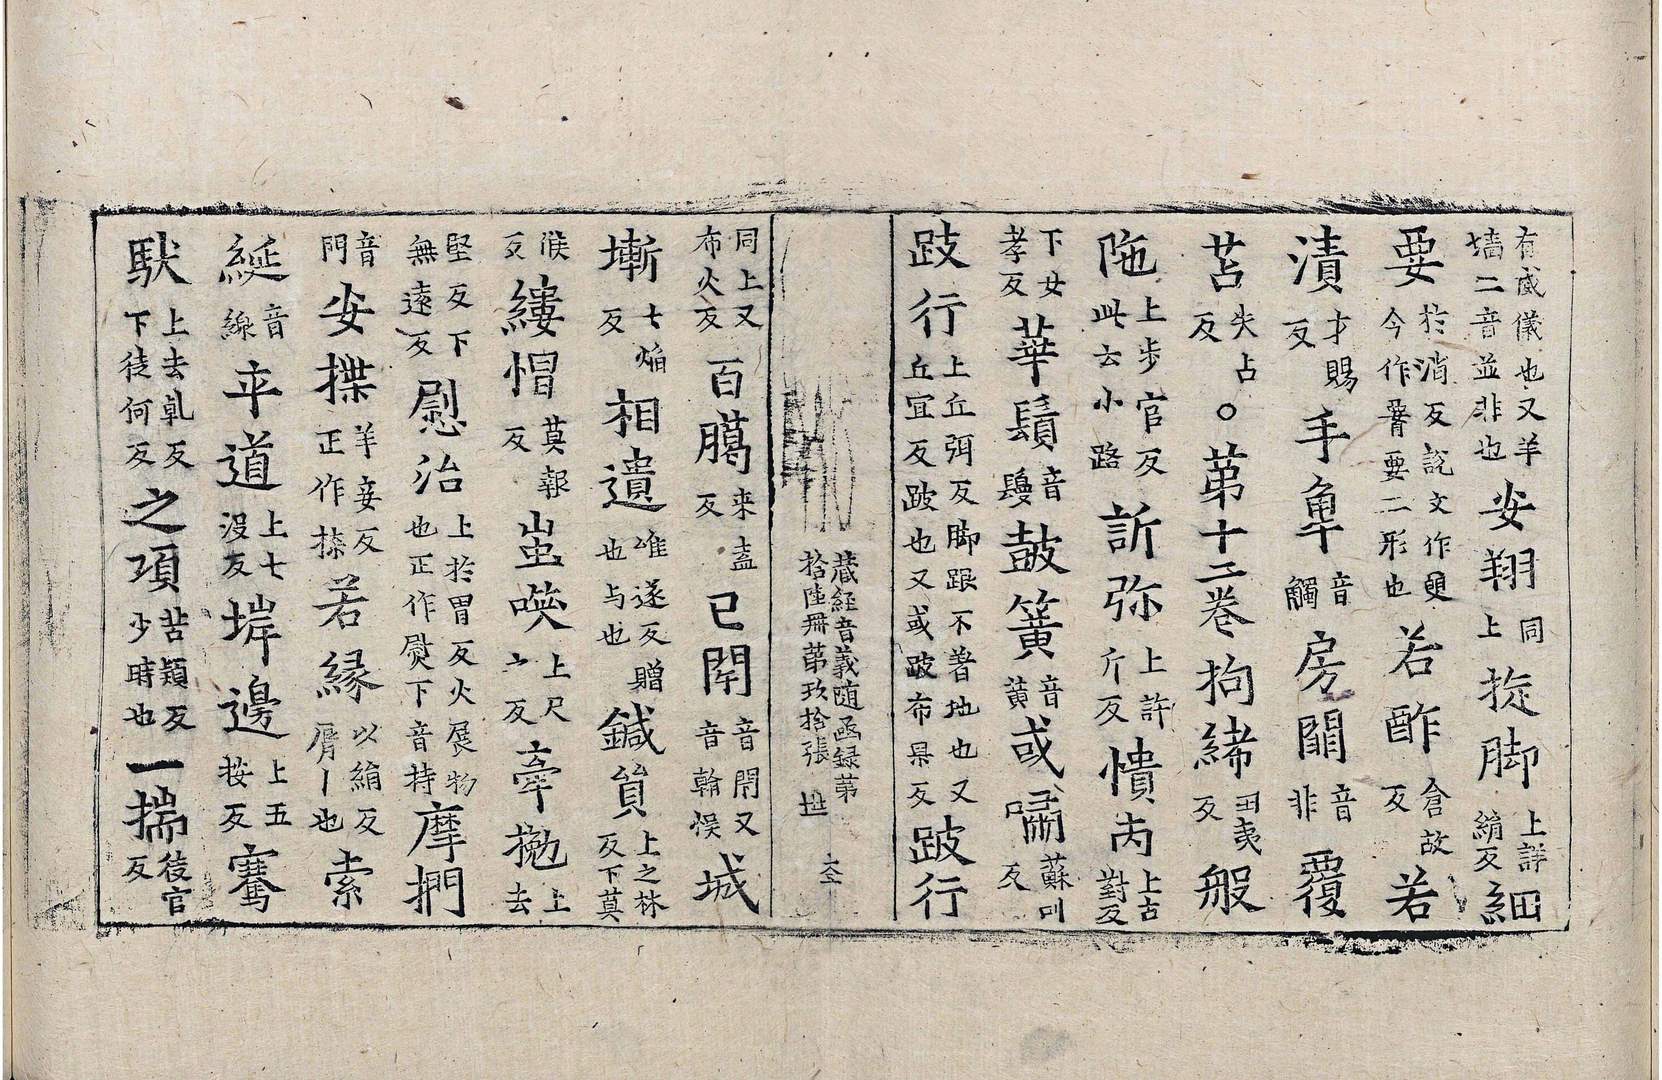 有威儀也又羊墙二音並非也安翔上同㨀脚上詳絹反細
要於消反說文作𦥼今作䙅要二形也若酢倉故反若
漬才賜反手𠦑音觸房闈音非覆
苫失占反○第十二卷拘絺丑夷反般
陁上步官反此云小路訢弥上許斤反憒丙上古對反
下女孝反華鬚音鬘鼓簧音黃或嘯蘇叫反
跂行上丘弭反脚跟不著地也又丘宜反跛也又或跛布果反跛行
藏經音義随函録第
拾陸冊第玖拾張 世
同上又布火反百臈来盍反已閈音閈又音翰悮城
塹七焰反相遺唯遂反贈也与也鍼貿上之林反下莫
候反縷帽莫報反蚩𠸍上尺之反牽拋上去
堅反下無遠反慰治上於胃反火展物也正作熨下音持摩捫
音門安揲羊妾反正作㨽若縁以絹反屑丨也索
綖音線平道上七沒反垾邊上五按反騫
䭾上去乹反下徒何反之項苦穎反少時也一揣徒官反